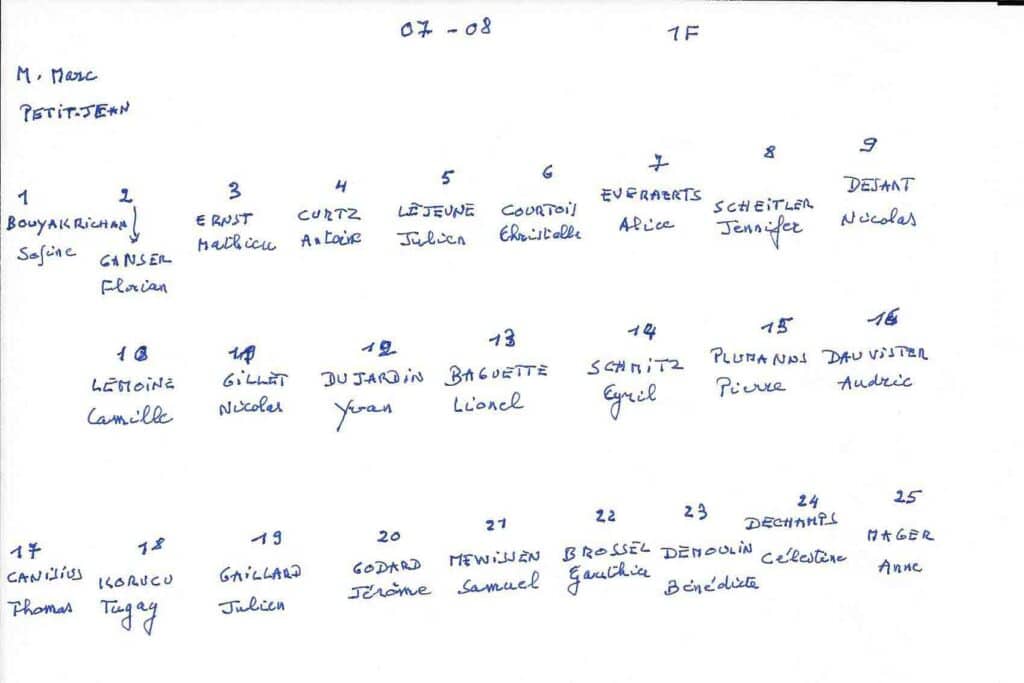 07 - 08 1F
M. Marc
PETIT-JEAN
1 2 3 4 5 6 7 8 9
BOUYAKRICHAN GANSER ERNST CURTZ LEJEUNE COURTOIS EVERAERTS SCHEITLER DEJANT
Sofine Florian Mathieu Antoine Julien Christelle Alice Jennifer Nicolas
10 11 12 13 14 15 16
LEMOINE GILLET DUJARDIN BAGUETTE SCHMITZ PLUMANNS DAUVISTER
Camille Nicolas Yvan Lionel Cyril Pierre Audric
17 18 19 20 21 22 23 24 25
CANISIUS KORUCU GAILLARD GODARD MEWISSEN BROSSEL DEMOULIN DECHAMPS MAGER
Thomas Tugay Julien Jérôme Samuel Gauthier Bénédicte Célestine Anne